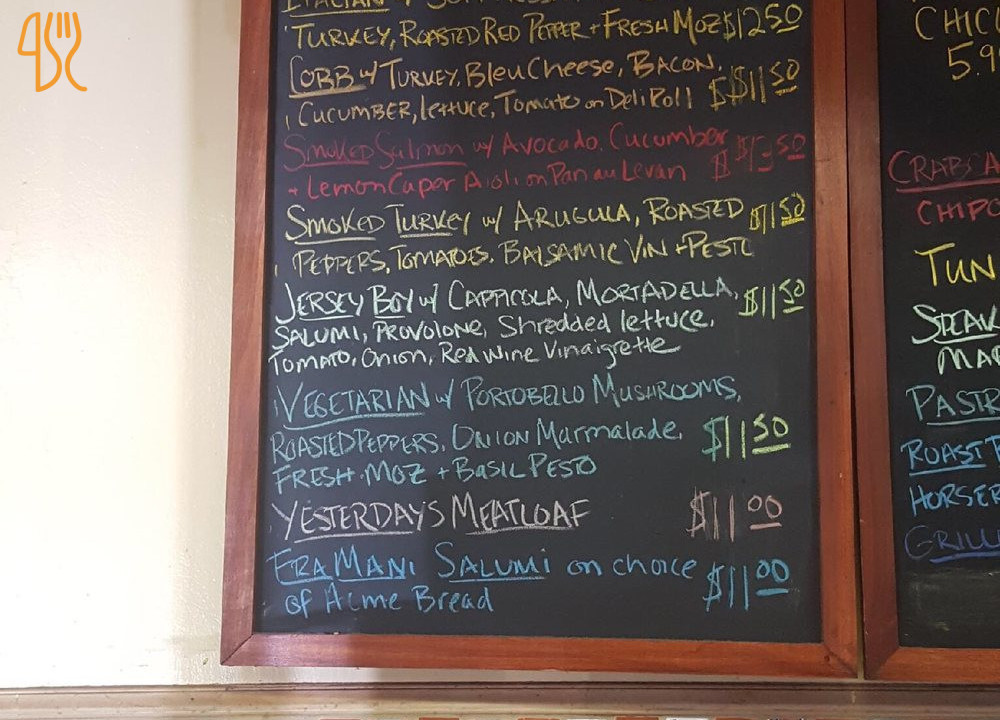 ITALIAN w/
TURKEY, ROASTED RED PEPPER + FRESH MOZ $12.50
COBB w/ TURKEY, Bleu Cheese, BACON,
CUCUMBER, lettuce, Tomato on Deli Roll $$11.50
Smoked Salmon w/ Avocado, Cucumber
+ Lemon Caper Aioli on Pan au Levan $ $13.50
SMOKED TURKEY w/ ARUGULA, ROASTED $11.50
PEPPERS, TOMATOES, BALSAMIC VIN + PESTO
JERSEY BOY w/ CAPPICOLA, MORTADELLA, $11.50
SALUMI, PROVOLONE, Shredded lettuce,
Tomato, Onion, Red Wine Vinaigrette
VEGETARIAN w/ PORTOBELLO MUSHROOMS,
ROASTED PEPPERS, ONION Marmalade, $11.50
FRESH MOZ + BASIL PESTO
YESTERDAYS MEATLOAF $11.00
FRA MANI SALUMI on choice $11.00
of Acme Bread
CHIC
5.9
CRAB
CHIPO
TUN
PASTR
ROAST
HORSER
GRILL